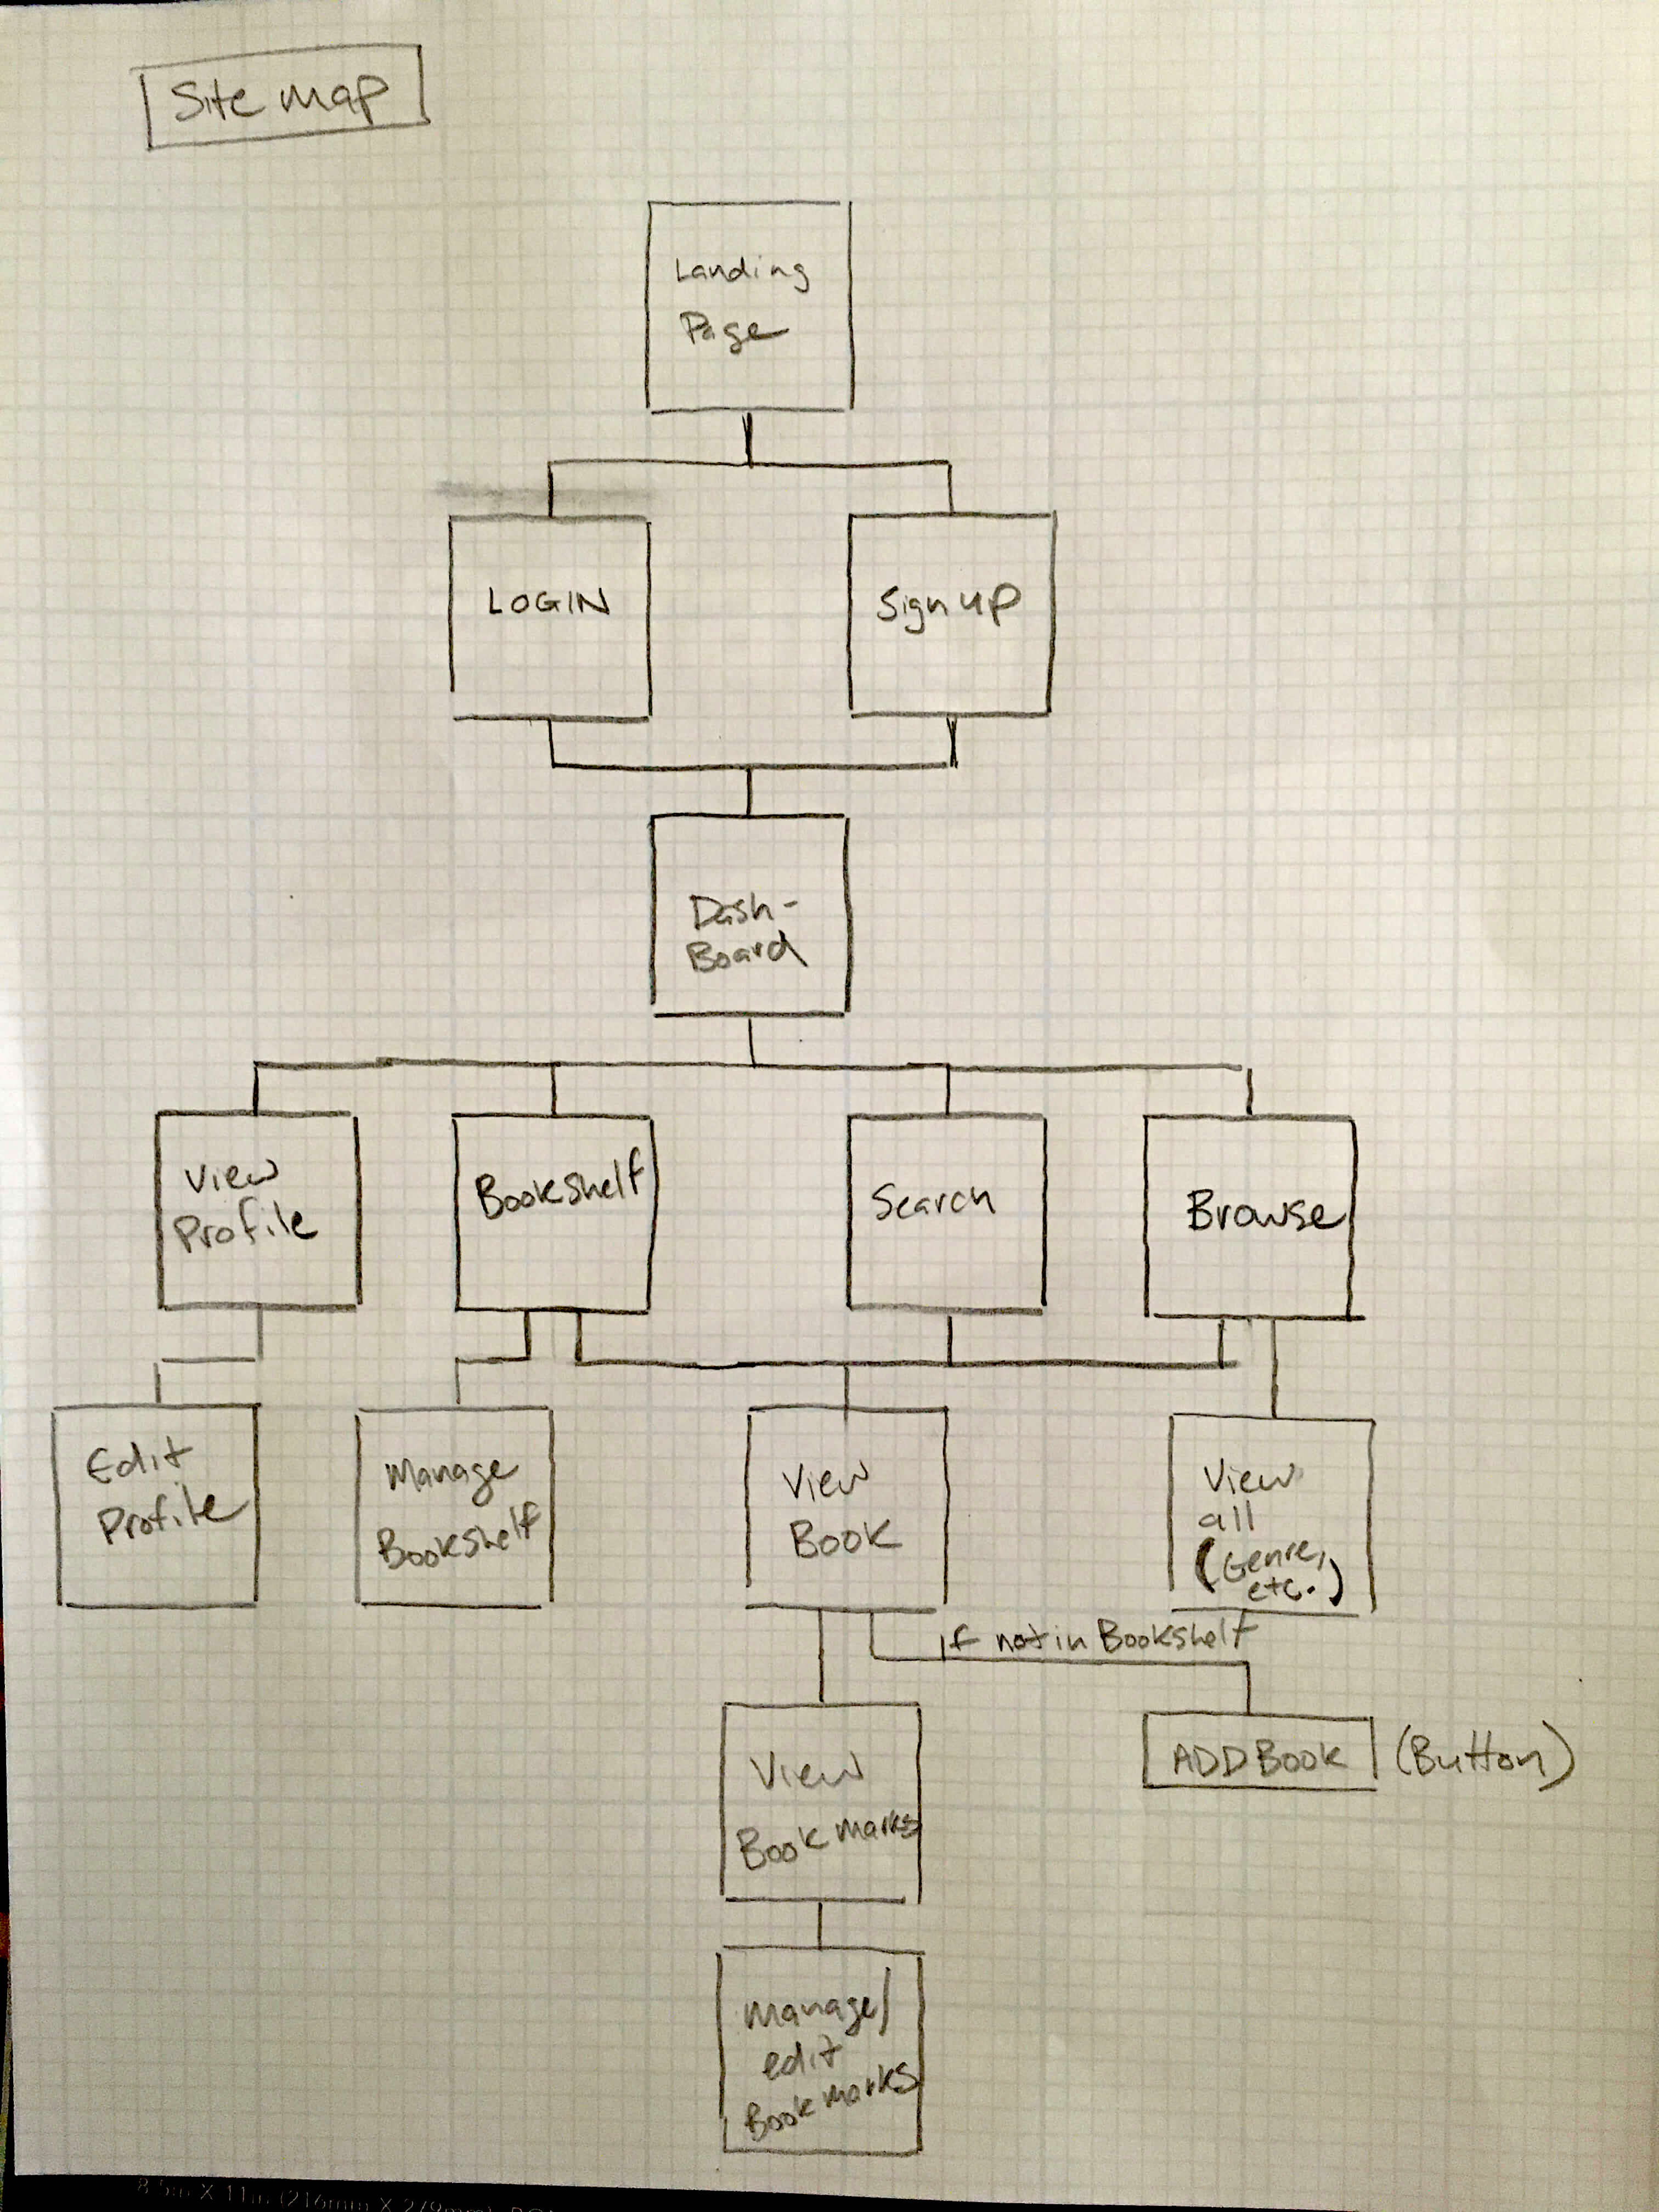 Site map
Landing
Page
LOGIN
Sign up
Dash-
Board
View
Profile
Bookshelf
Search
Browse
Edit
Profile
Manage
Bookshelf
View
Book
View
all
(Genre,
etc.)
if not in Bookshelf
View
Bookmarks
ADD BOOK (Button)
Manage/
edit
Bookmarks
8.5in X 11in (216mm X 279mm)